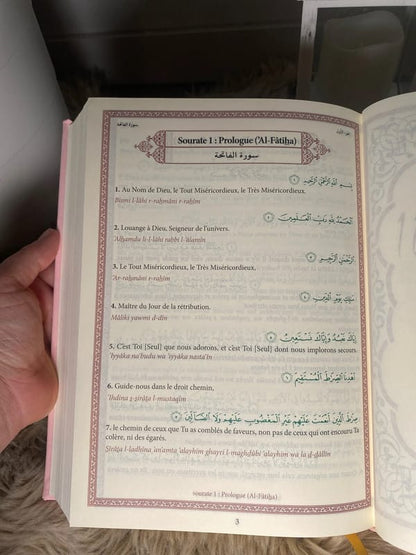 سورة الفاتحة
الجزء الأول
Sourate 1 : Prologue ('Al-Fâtiḥa)
سورة الفاتحة
بِسْمِ اللَّهِ الرَّحْمَٰنِ الرَّحِيمِ ١
1. Au Nom de Dieu, le Tout Miséricordieux, le Très Miséricordieux.
Bismi l-lâhi r-raḥmâni r-raḥîm
الْحَمْدُ لِلَّهِ رَبِّ الْعَالَمِينَ ٢
2. Louange à Dieu, Seigneur de l'univers.
'Alḥamdu li-l-lâhi rabbi l-'âlamîn
الرَّحْمَٰنِ الرَّحِيمِ ٣
3. Le Tout Miséricordieux, le Très Miséricordieux,
'Ar-raḥmâni r-raḥîm
مَالِكِ يَوْمِ الدِّينِ ٤
4. Maître du Jour de la rétribution.
Mâliki yawmi d-dîn
إِيَّاكَ نَعْبُدُ وَإِيَّاكَ نَسْتَعِينُ ٥
5. C'est Toi [Seul] que nous adorons, et c'est Toi [Seul] dont nous implorons secours
'Iyyâka na'budu wa 'iyyâka nasta'în
اهْدِنَا الصِّرَاطَ الْمُسْتَقِيمَ ٦
6. Guide-nous dans le droit chemin,
'Ihdina ṣ-ṣirâṭa l-mustaqîm
صِرَاطَ الَّذِينَ أَنْعَمْتَ عَلَيْهِمْ غَيْرِ الْمَغْضُوبِ عَلَيْهِمْ وَلَا الضَّالِّينَ ٧
7. le chemin de ceux que Tu as comblés de faveurs, non pas de ceux qui ont encouru Ta
colère, ni des égarés.
Ṣirâṭa l-ladhîna 'an'amta 'alayhim ghayri l-maghḍûbi 'alayhim wa la ḍ-ḍâllîn
sourate 1 : Prologue (Al-Fâtiḥa)
3